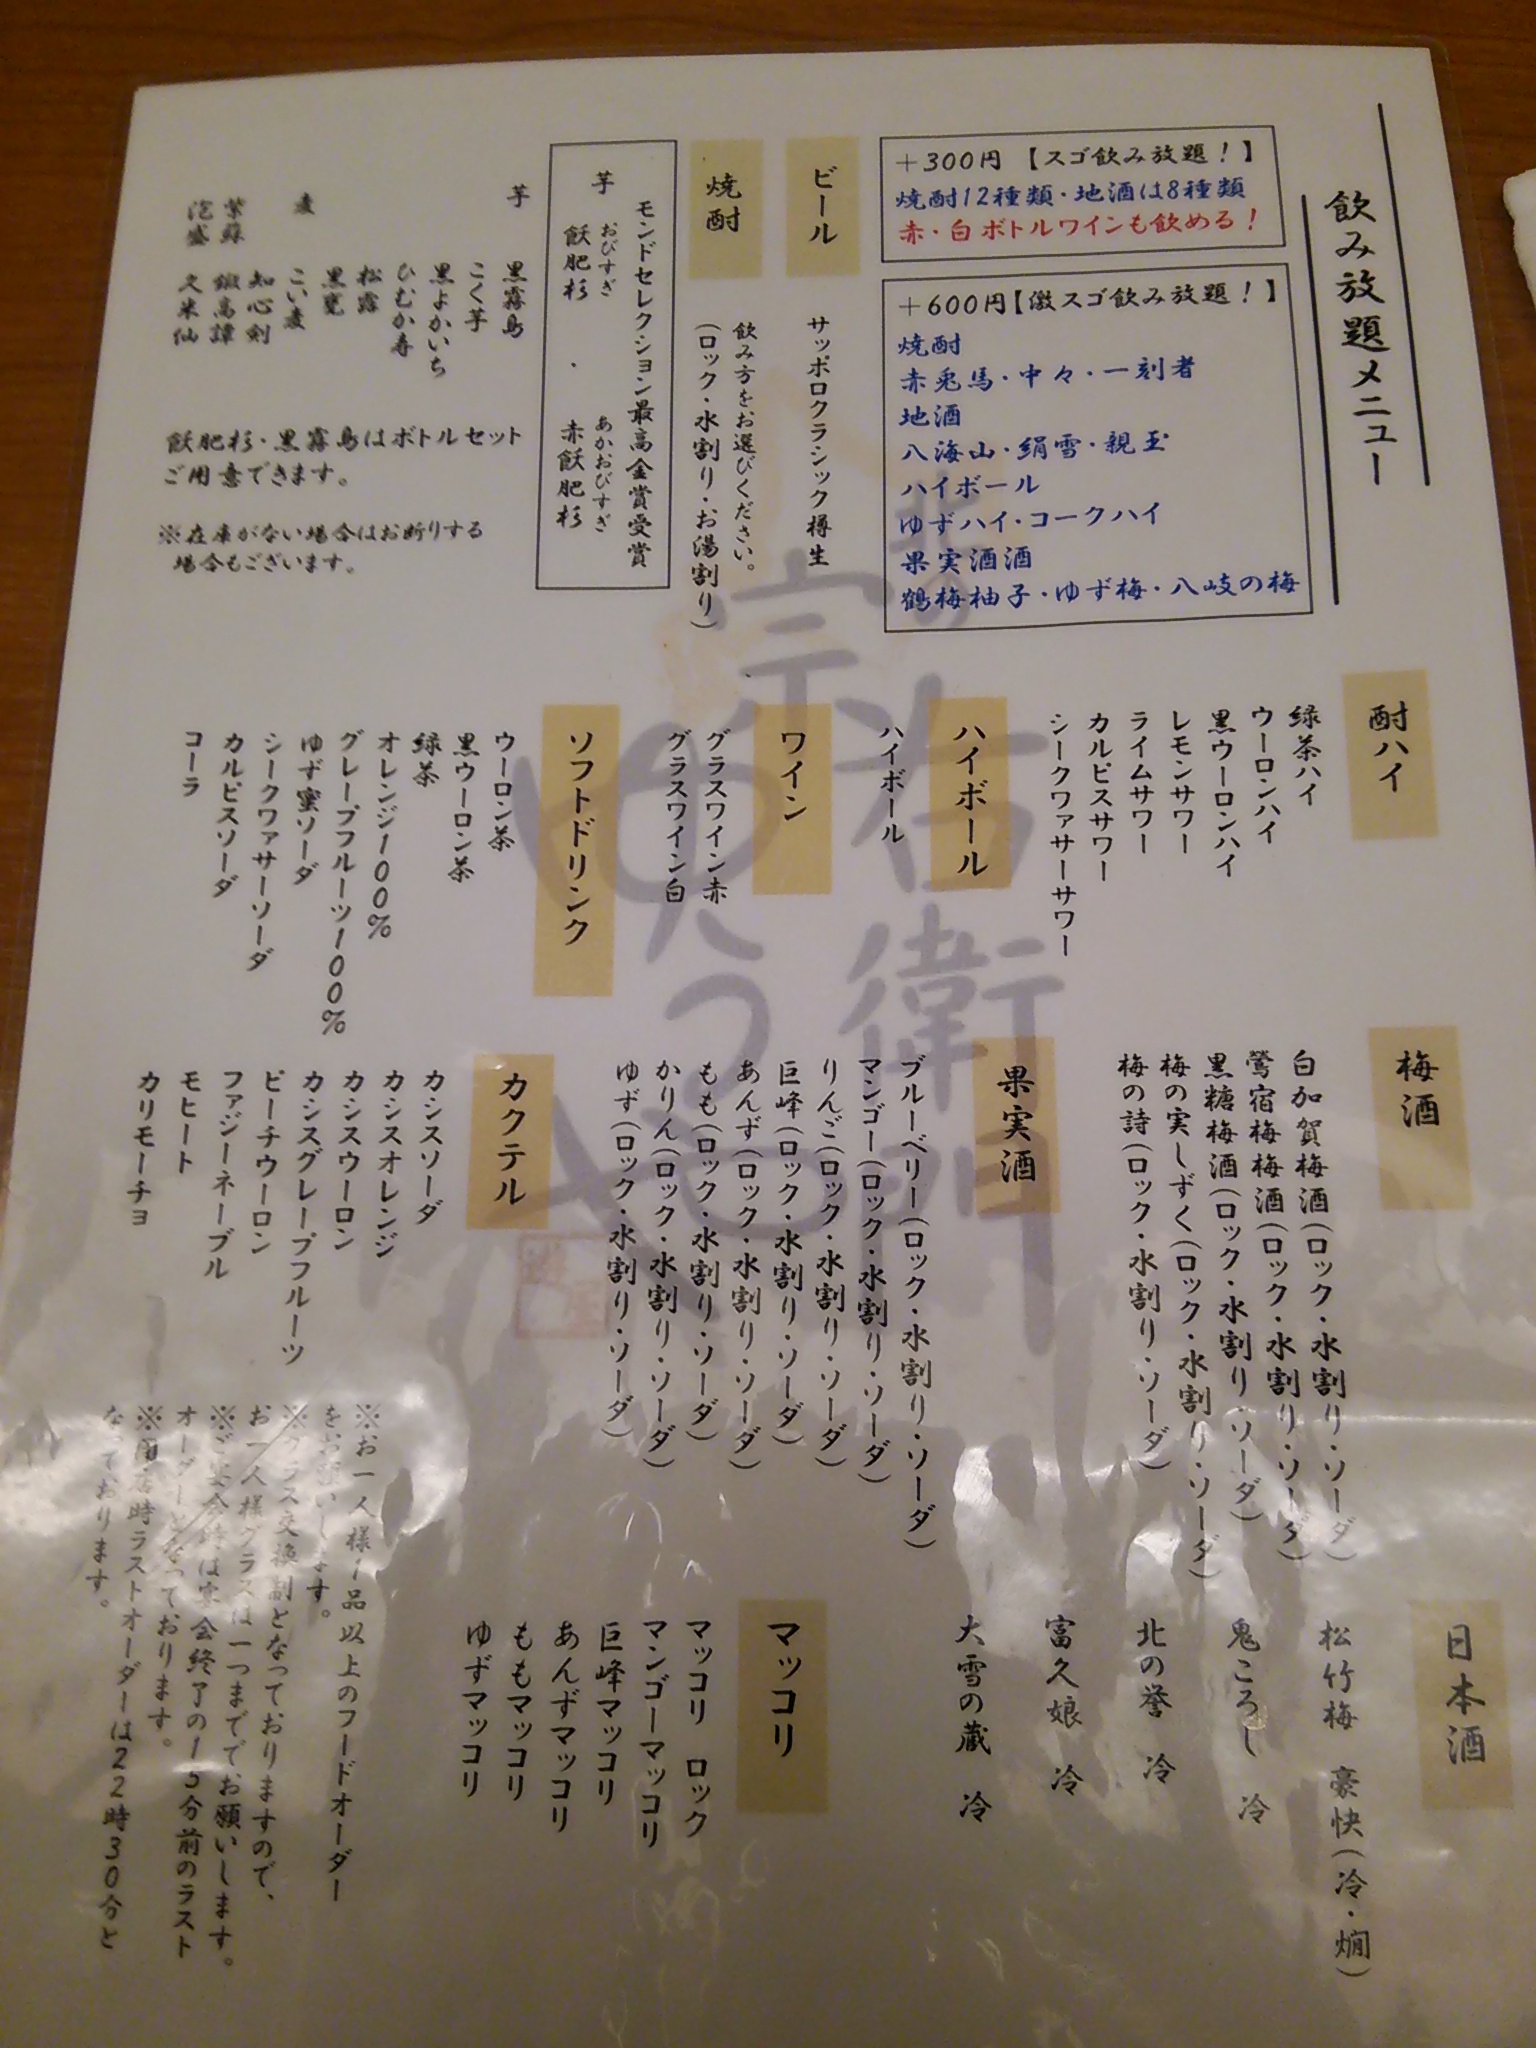 飲み放題メニュー
+300円 【スゴ飲み放題!】
焼酎12種類・地酒は8種類
赤・白ボトルワインも飲める!
+600円【激スゴ飲み放題!】
焼酎
赤兎馬・中々・一刻者
地酒
八海山・絹雪・親玉
ハイボール
ゆずハイ・コークハイ
果実酒酒
鶴梅柚子・ゆず梅・八岐の梅
ビール
サッポロクラシック樽生
焼酎
飲み方をお選びください。
(ロック・水割り・お湯割り)
モンドセレクション最高金賞受賞
芋 飫肥杉 おびすぎ ・ 赤飫肥杉 あかおびすぎ
芋 黒霧島
こく芋
黒よかいち
ひむか寿
松露
黒甕
麦 こい麦
知心剣
紫蘇 鍛高譚
泡盛 久米仙
飫肥杉・黒霧島はボトルセット
ご用意できます。
※在庫がない場合はお断りする
場合もございます。
酎ハイ
緑茶ハイ
ウーロンハイ
黒ウーロンハイ
レモンサワー
ライムサワー
カルピスサワー
シークワァサーサワー
ハイボール
ハイボール
ワイン
グラスワイン赤
グラスワイン白
ソフトドリンク
ウーロン茶
黒ウーロン茶
緑茶
オレンジ100%
グレープフルーツ100%
ゆず蜜ソーダ
シークワァサーソーダ
カルピスソーダ
コーラ
梅酒
白加賀梅酒(ロック・水割り・ソーダ)
鶯宿梅梅酒(ロック・水割り・ソーダ)
黒糖梅酒(ロック・水割り・ソーダ)
梅の実しずく(ロック・水割り・ソーダ)
梅の詩(ロック・水割り・ソーダ)
果実酒
ブルーベリー(ロック・水割り・ソーダ)
マンゴー(ロック・水割り・ソーダ)
りんご(ロック・水割り・ソーダ)
巨峰(ロック・水割り・ソーダ)
あんず(ロック・水割り・ソーダ)
もも(ロック・水割り・ソーダ)
かりん(ロック・水割り・ソーダ)
ゆず(ロック・水割り・ソーダ)
カクテル
カシスソーダ
カシスオレンジ
カシスウーロン
カシスグレープフルーツ
ピーチウーロン
ファジーネーブル
モヒート
カリモーチョ
日本酒
松竹梅 豪快(冷・燗)
鬼ころし 冷
北の誉 冷
富久娘 冷
大雪の蔵 冷
マッコリ
マッコリ ロック
マンゴーマッコリ
巨峰マッコリ
あんずマッコリ
ももマッコリ
ゆずマッコリ
※お一人様1品以上のフードオーダー
をお願いします。
※グラス交換制となっておりますので、
お一人様グラスは一つまででお願いします。
※ご宴会時は宴会終了の15分前のラスト
オーダーとなっております。
※閉店時ラストオーダーは22時30分と
なっております。
宗右衛門